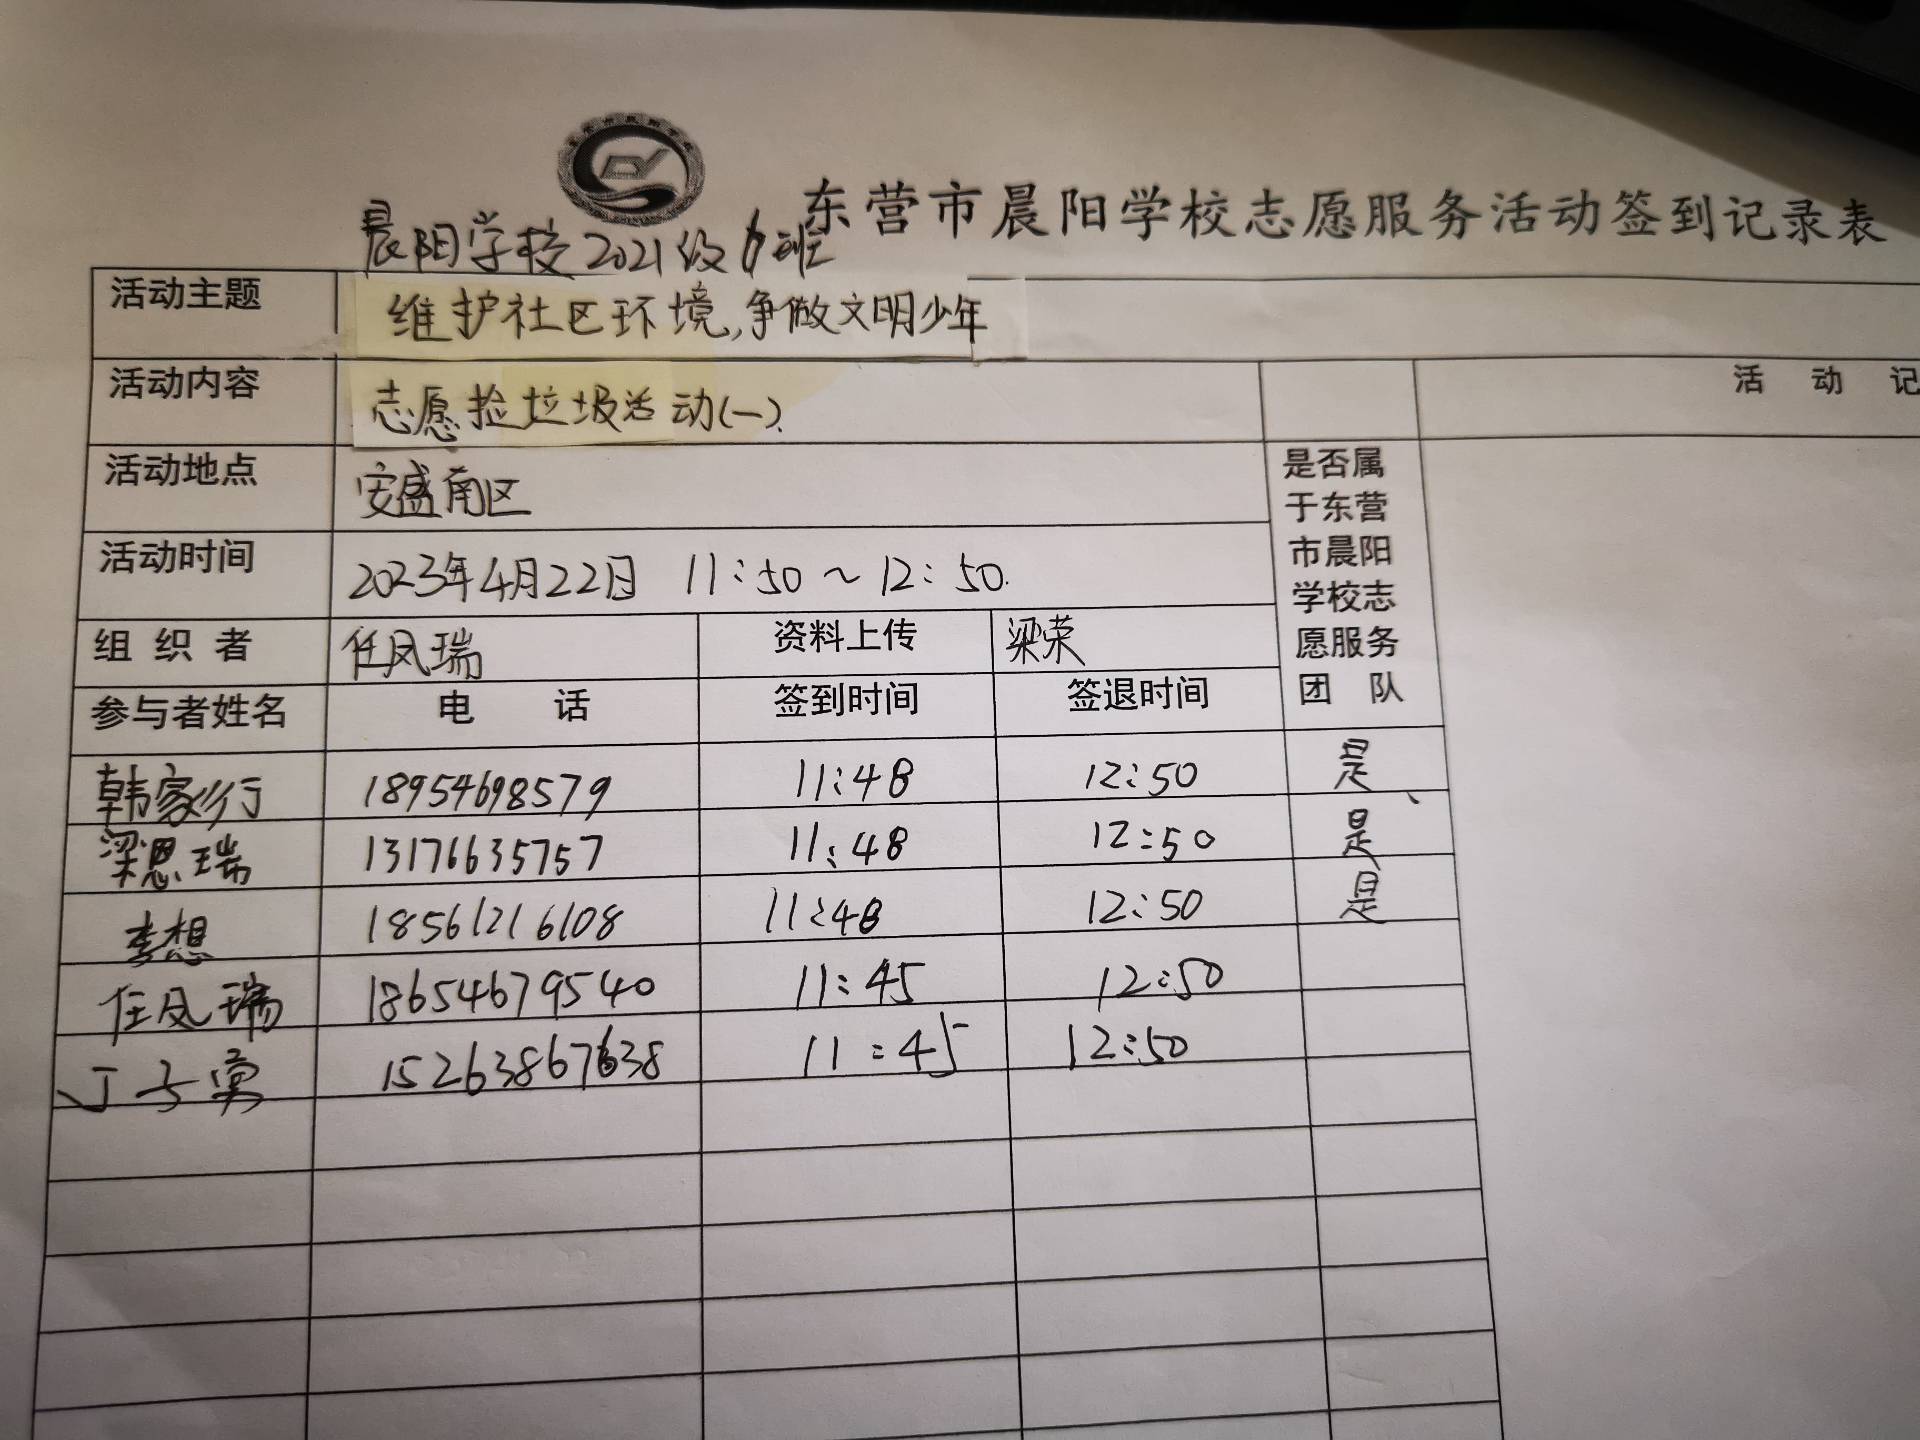 东营市晨阳学校志愿服务活动签到记录表
晨阳学校2021级 班
活动主题 维护社区环境,争做文明少年
活动内容 志愿捡垃圾活动(一). 活动记
活动地点 安盛南区
是否属于东营市晨阳学校志愿服务团队
活动时间 2023年4月22日 11:50~12:50.
组织者 任凤瑞 资料上传 梁荣
参与者姓名 电话 签到时间 签退时间
韩家衍 18954698579 11:48 12:50 是
梁恩瑞 13176635757 11:48 12:50 是
李想 18561216108 11:48 12:50 是
任凤瑞 18654679540 11:45 12:50
丁 15263867638 11:45 12:50